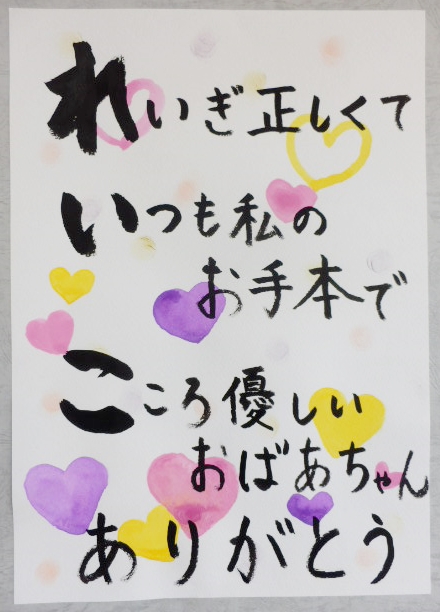 れいぎ正しくて
いつも私の
お手本で
こころ優しい
おばあちゃん
ありがとう